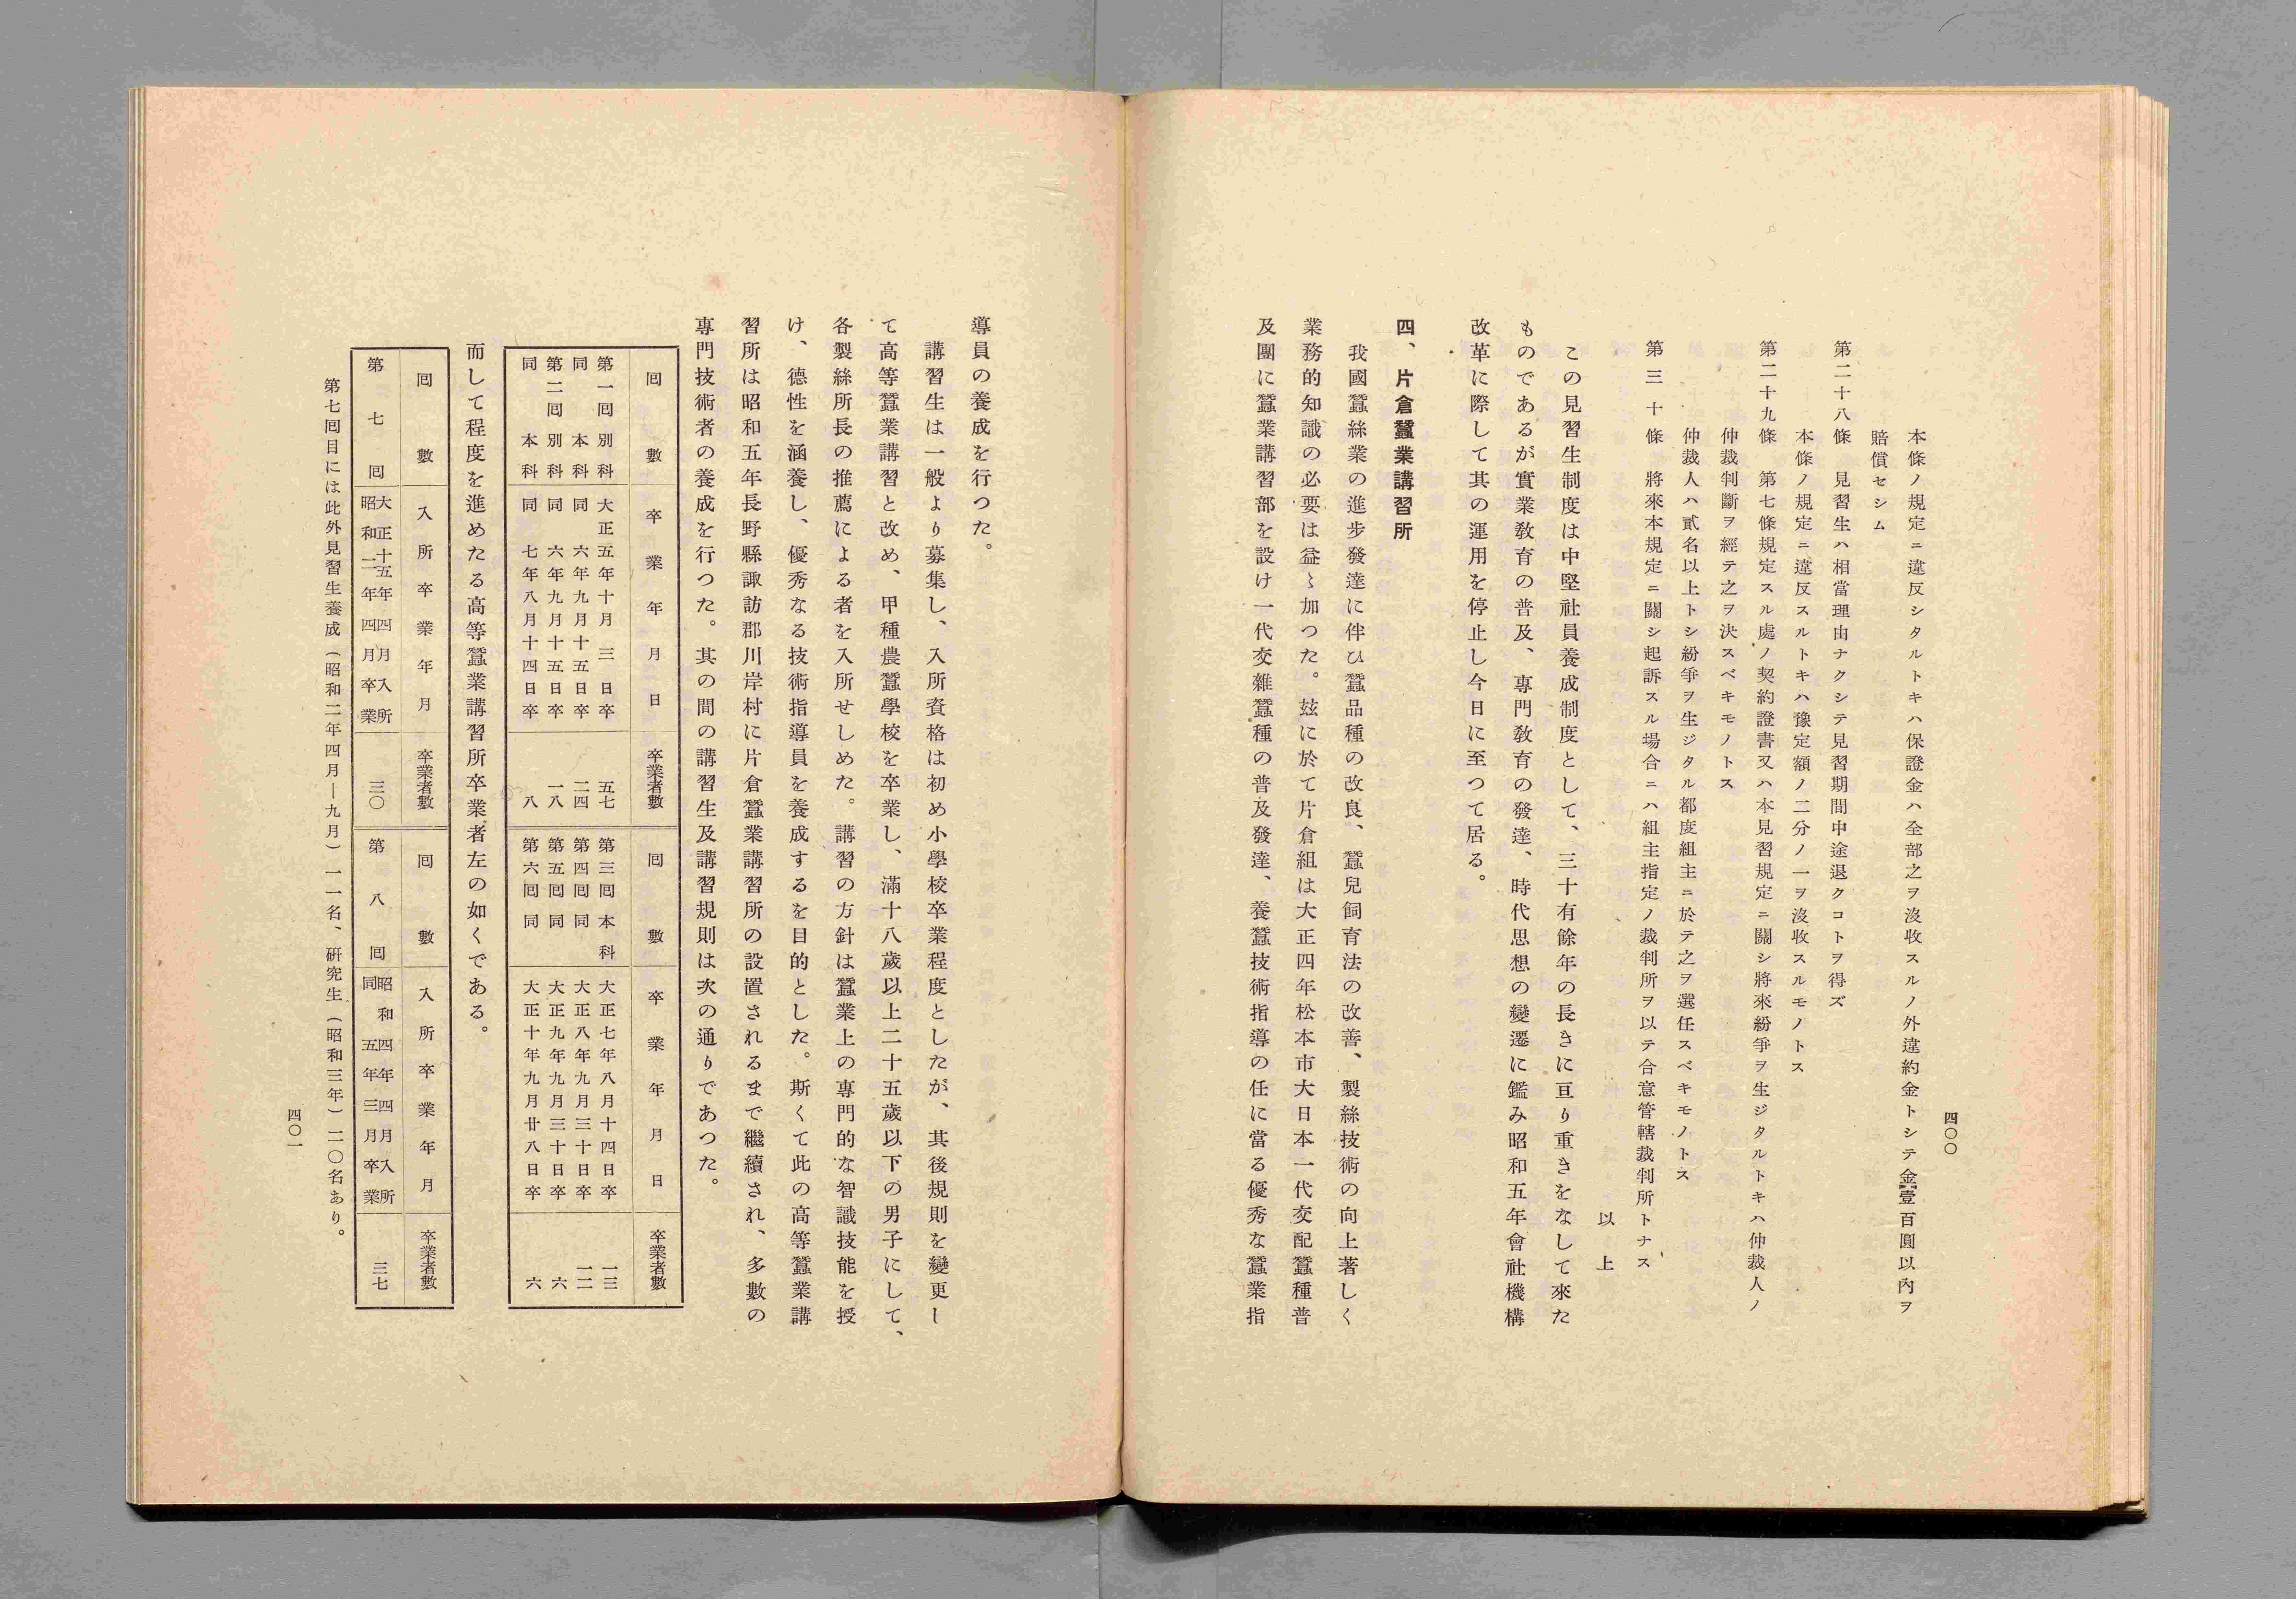 四〇〇
本條ノ規定ニ違反シタルトキハ保證金ハ全部之ヲ沒收スルノ外違約金トシテ金壹百圓以內ヲ
賠償セシム
第二十八條　見習生ハ相當理由ナクシテ見習期間中途退クコトヲ得ズ
本條ノ規定ニ違反スルトキハ豫定額ノ二分ノ一ヲ沒收スルモノトス
第二十九條　第七條規定スル處ノ契約證書又ハ本見習規定ニ關シ將來紛爭ヲ生ジタルトキハ仲裁人ノ
仲裁判斷ヲ經テ之ヲ決スベキモノトス
仲裁人ハ貳名以上トシ紛爭ヲ生ジタル都度組主ニ於テ之ヲ選任スベキモノトス
第三十條　將來本規定ニ關シ起訴スル場合ニハ組主指定ノ裁判所ヲ以テ合意管轄裁判所トナス
以上
この見習生制度は中堅社員養成制度として、三十有餘年の長きに亘り重きをなして來た
ものであるが實業教育の普及、專門教育の發達、時代思想の變遷に鑑み昭和五年會社機構
改革に際して其の運用を停止し今日に至つて居る。
四、片倉蠶業講習所
我國蠶絲業の進步發達に伴ひ蠶品種の改良、蠶兒飼育法の改善、製絲技術の向上著しく
業務的知識の必要は益〻加つた。玆に於て片倉組は大正四年松本市大日本一代交配蠶種普
及團に蠶業講習部を設け一代交雜蠶種の普及發達、養蠶技術指導の任に當る優秀な蠶業指
導員の養成を行つた。
講習生は一般より募集し、入所資格は初め小學校卒業程度としたが、其後規則を變更し
て高等蠶業講習と改め、甲種農蠶學校を卒業し、滿十八歲以上二十五歲以下の男子にして、
各製絲所長の推薦による者を入所せしめた。講習の方針は蠶業上の專門的な智識技能を授
け、德性を涵養し、優秀なる技術指導員を養成するを目的とした。斯くて此の高等蠶業講
習所は昭和五年長野縣諏訪郡川岸村に片倉蠶業講習所の設置されるまで繼續され、多數の
專門技術者の養成を行つた。其の間の講習生及講習規則は次の通りであつた。
回數　卒業年月日　卒業者數　回數　卒業年月日　卒業者數
第一回別科　大正五年十月三日卒　五七　第三回本科　大正七年八月十四日卒　一三
同　本科　同　六年九月十五日卒　二四　第四回同　大正八年九月三十日卒　一二
第二回別科　同　六年九月十五日卒　一八　第五回同　大正九年九月三十日卒　六
同　本科　同　七年八月十四日卒　八　第六回同　大正十年九月廿八日卒　六
而して程度を進めたる高等蠶業講習所卒業者左の如くである。
回數　入所卒業年月　卒業者數　回數　入所卒業年月　卒業者數
第七回　大正十五年四月入所　昭和二年四月卒業　三〇　第八回　昭和四年四月入所　同五年三月卒業　三七
第七回目には此外見習生養成（昭和二年四月―九月）一一名、硏究生（昭和三年）二〇名あり。
四〇一